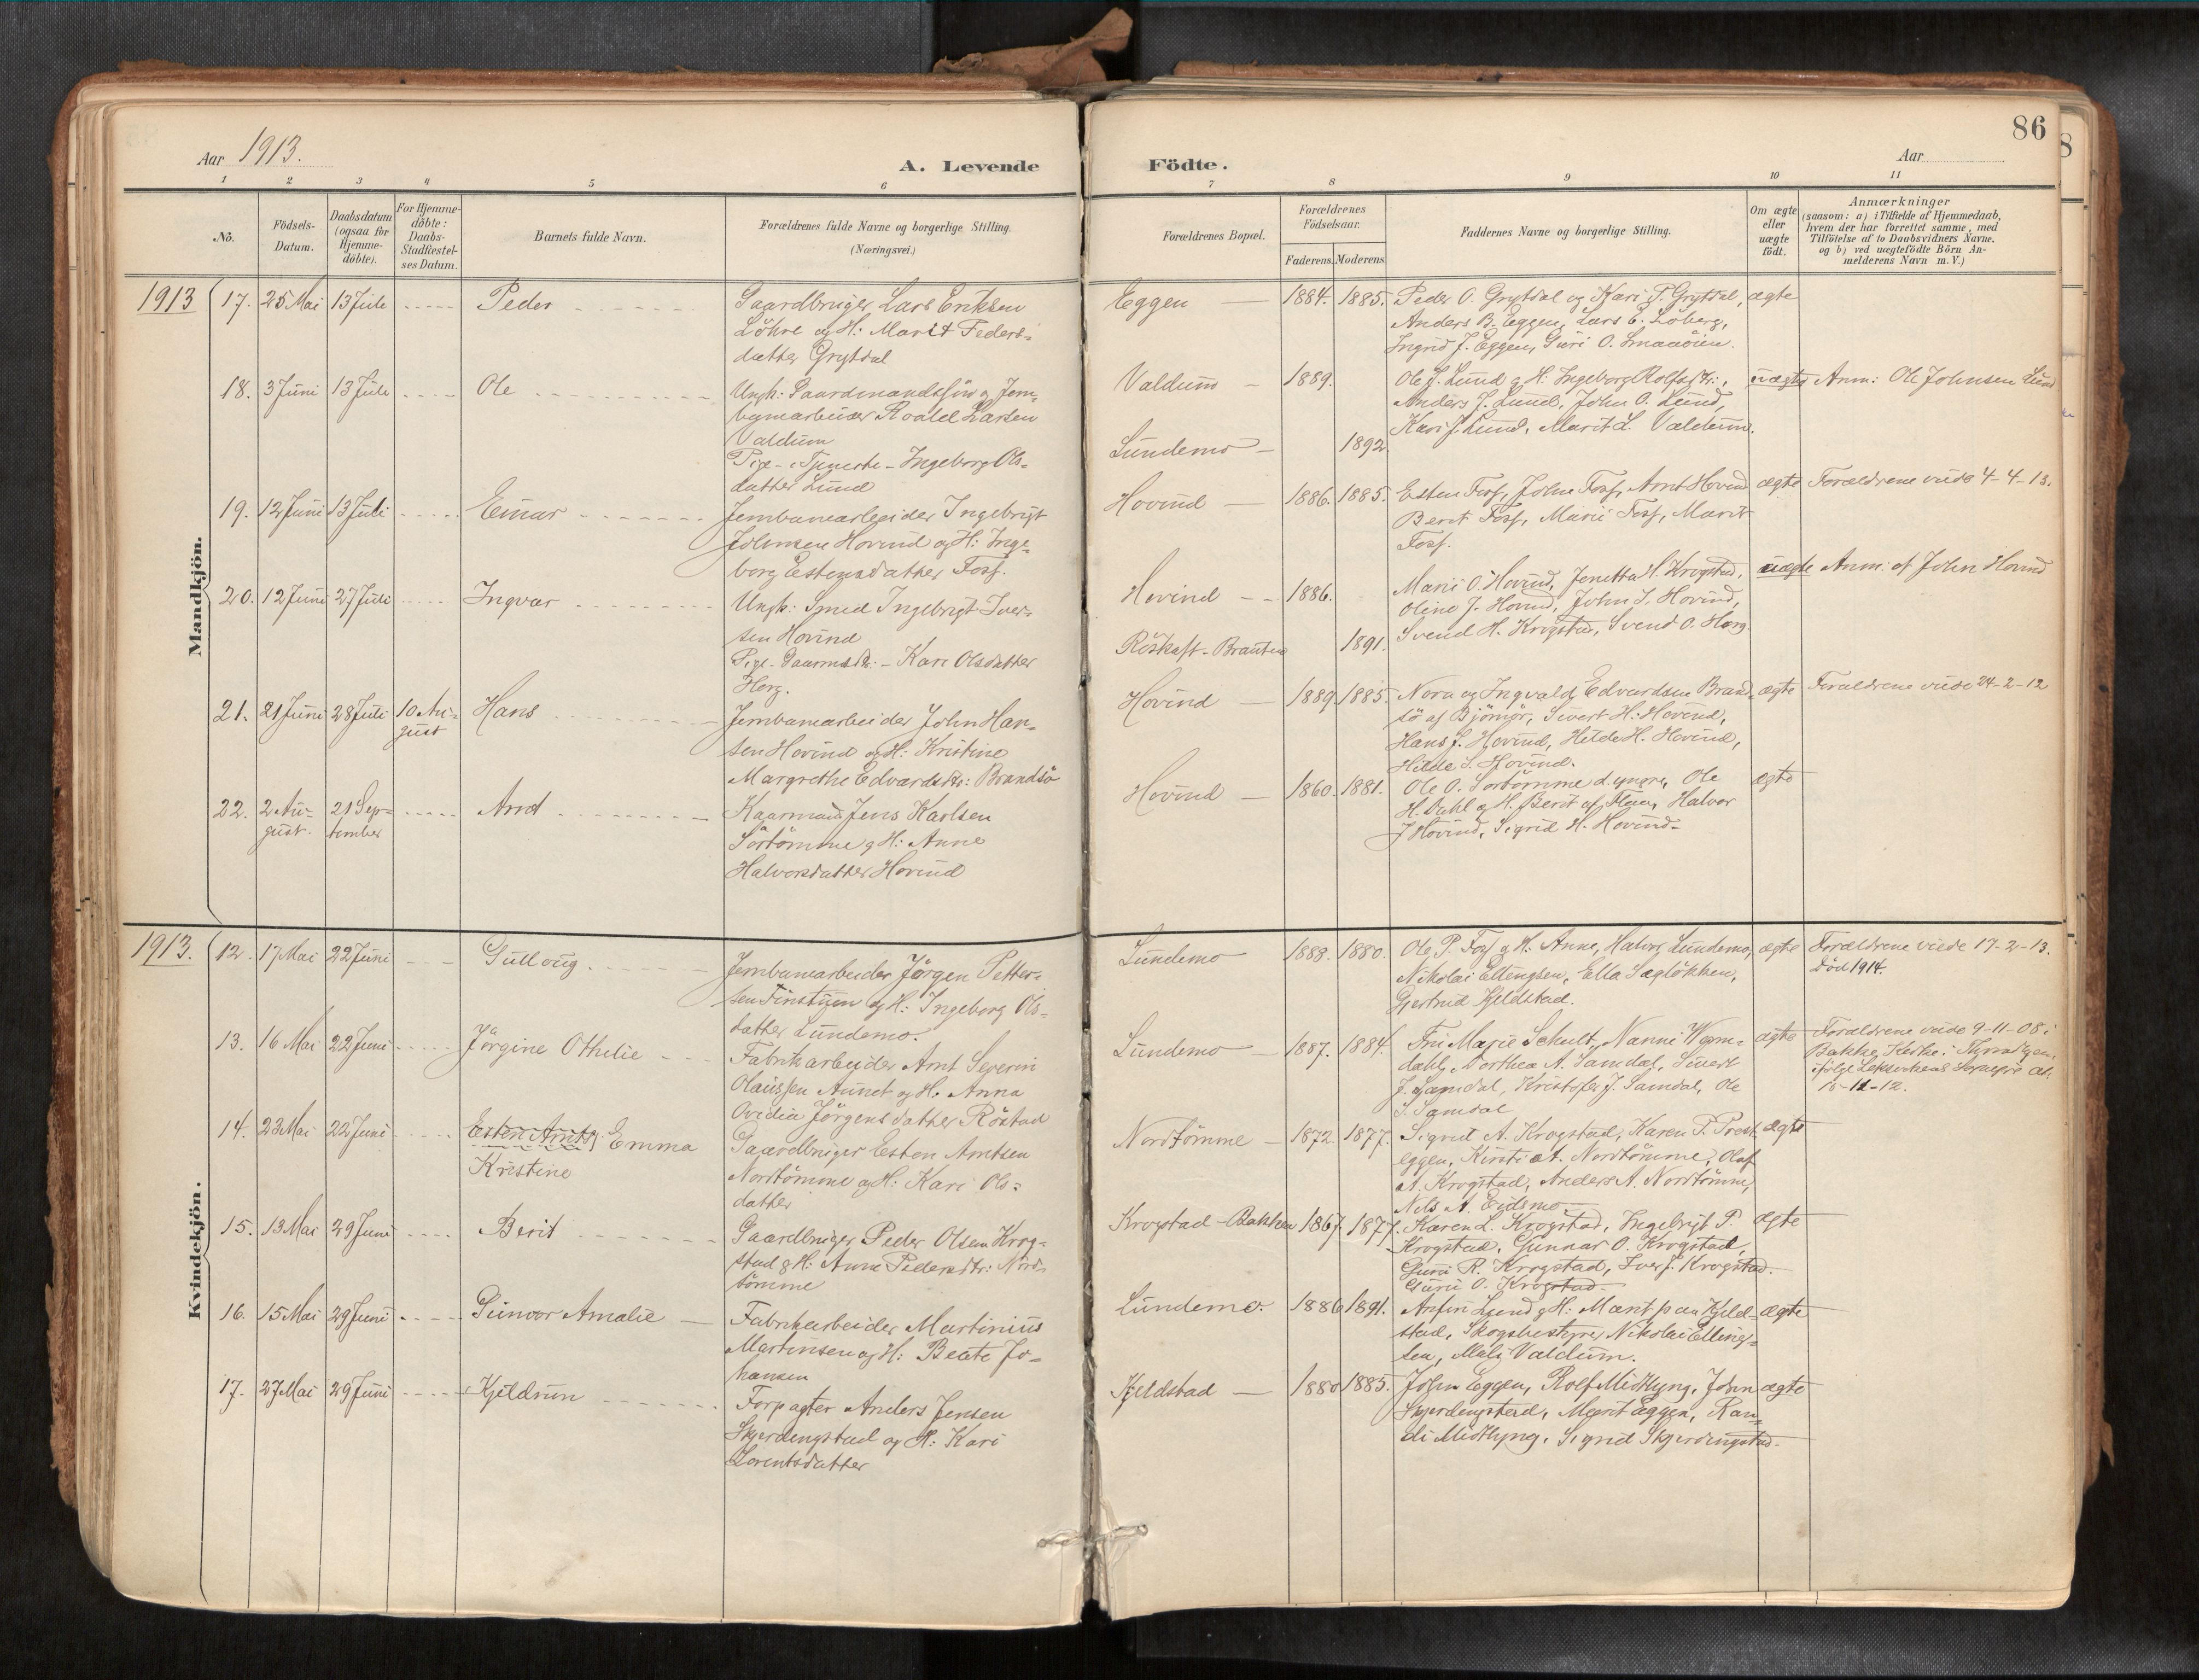 86
Aar 1913.
A. Levende Födte.
Aar
1 2 3 4 5 6 7 8 9 10 11
No.
Födsels-
Datum.
Daabsdatum
(ogsaa for
Hjemme-
döbte).
For Hjemme-
döbte:
Daabs-
Stadfæstel-
ses Datum.
Barnets fulde Navn.
Forældrenes fulde Navne og borgerlige Stilling.
(Næringsvei.)
Forældrenes Bopæl.
Forældrenes
Födselsaar.
Faderens. Moderens.
Faddernes Navne og borgerlige Stilling.
Om ægte
eller
uægte
födt.
Anmærkninger
(saasom: a) i Tilfælde af Hjemmedaab,
hvem der har forrettet samme, med
Tilföielse af to Daabsvidners Navne.
og b) ved uægtefödte Börn An-
melderens Navn m. V.)
Mandkjön.
1913 17. 25 Mai 13 Jule Peder
Gaardbruger Lars Eriksen
Löhre og H: Marit Peders-
datter Grytdal
Eggen 1884. 1885.
Peder O. Grytdal og Kari P. Grytdal,
Anders B. Eggen, Lars E. Loberg,
Ingrid J. Eggen, Guri O. Smaaöien.
ægte
18. 3 Juni 13 Jule Ole
Ungk: Gaardmandssön og Jern-
banearbeider Roald Larsen
Valdum
Pige - i Tjeneste - Ingeborg Ols-
datter Lund
Valdum 1889.
Lundemo 1892
Ole J. Lund og H: Ingeborg Rolfsdtr:,
Anders J. Lund, John O. Lund,
Kari J. Lund, Marit L. Valdum.
uægte Anm: Ole Johnsen Lund
19. 12 Juni 13 Juli Einar
Jernbanearbeider Ingebrigt
Johnsen Hovind og H: Inge-
borg Estensdatter Foss.
Hovind 1886. 1885.
Esten Foss, John Foss, Arnt Hovind
Berit Foss, Marii Foss, Marit
Foss.
ægte Forældrene viede 4-4-13.
20. 12 Juni 27 Juli Ingvar
Ungk: Smed Ingebrigt Iver-
sen Hovind
Pige - Gaarmdtr: - Kari Olsdatter
Horg.
Hovind 1886.
Röskaft-Brauten 1891.
Marii O. Hovind, Jenetta H. Krogstad,
Oline J. Hovind, John I. Hovind,
Svend H. Krogstad, Svend O. Horg.
uægte Anm. af John Hovind
21. 21 Juni 28 Juli 10 Au-
gust Hans
Jernbanearbeider John Han-
sen Hovind og H: Kristine
Margrethe Edvardsdtr: Brandsö
Hovind 1889. 1885
Nora og Ingvald Edvardsen Brand-
sö af Björnör, Sivert H: Hovind,
Hans J. Hovind, Hilde H. Hovind,
Hilde S. Hovind.
ægte Forældrene viede 24-2-12
22. 2 Au-
gust. 21 Sep-
tember Arnt
Kaarmand Jens Karlsen
Sörtömme og H: Anne
Halvorsdatter Hovind
Hovind 1860. 1881.
Ole O. Sortömme d. yngre, Ole
H. Dahl og H. Berit af Flaa, Halvor
J Hovind, Sigrid H. Hovind-
ægte
Kvindekjön.
1913. 12. 17 Mai 22 Juni Gulloug.
Jernbanearbeider Jörgen Petter-
sen Finstuen og H: Ingeborg Ols-
datter Lundemo.
Lundemo 1888. 1880.
Ole P. Foss og H: Anne, Halvor Lundemo,
Nikolai Ellingsen, Ella Sagløkken,
Gjertrud Kjeldstad.
ægte Forældrene viede 17-2-13.
Död 1914.
13. 16 Mai 22 Juni Jörgine Othilie
Fabrikarbeider Arnt Severin
Olaussen Aunet og H: Anna
Ovidia Jörgensdatter Röstad
Lundemo 1887. 1884.
Fru Marie Schult, Nanni Wem-
dahl, Dorthea A. Samdal, Sivert
J. Samdal, Kristofer J. Samdal, Ole
S. Samdal
ægte Forældrene viede 9-11-08 i
Bakke Kirke i Throndhjem
14. 23 Mai 22 Juni Esten Arnts Emma
Kristine
Gaardbruger Esten Arntsen
Nordtömme og H: Kari Ols-
datter
Nordtömme 1872. 1877.
Sigrid A. Krogstad, Karen P. Prest-
eggen, Kirsti A. Nordtömme, Olaf
A. Krogstad, Anders A. Nordtömme,
Nils A. Eidsmo
ægte
15. 13 Mai 29 Juni Berit
Gaardbruger Peder Olsen Krog-
stad og H: Anne Pedersdtr: Nord-
tömme
Krogstad-Bakken 1867. 1877.
Karen L. Krogstad, Ingebrigt P.
Krogstad, Gunnar O. Krogstad,
Guru R. Krogstad, Iver J. Krogstad.
Guru O. Krogstad
ægte
16. 15 Mai 29 Juni Gunvor Amalie
Fabrikarbeider Martinius
Martinsen og H: Beate Jo-
hansen
Lundemo 1886 1891.
Arfin Lund og H: Marit paa Kjeld-
stad, Skogbestyrer Nikolai Elling-
sen, Mali Valdum.
ægte
17. 27 Mai 29 Juni Kjeldrun
Forpagter Anders Jensen
Skjerdingstad og H: Kari
Lorentsdatter
Kjeldstad 1880 1885.
John Eggen, Rolf Midtlyng, John
Skjerdingstad, Marit Eggen, Ran-
di Midtlyng, Sigrid Skjerdingstad-
ægte